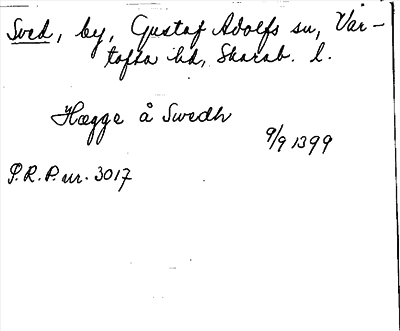 Sved, by, Gustaf Adolfs sn, Var-
tofta hd, Skarab. l.
Hægge å Swedh
9/9 1399
S.R.P. nr. 3017